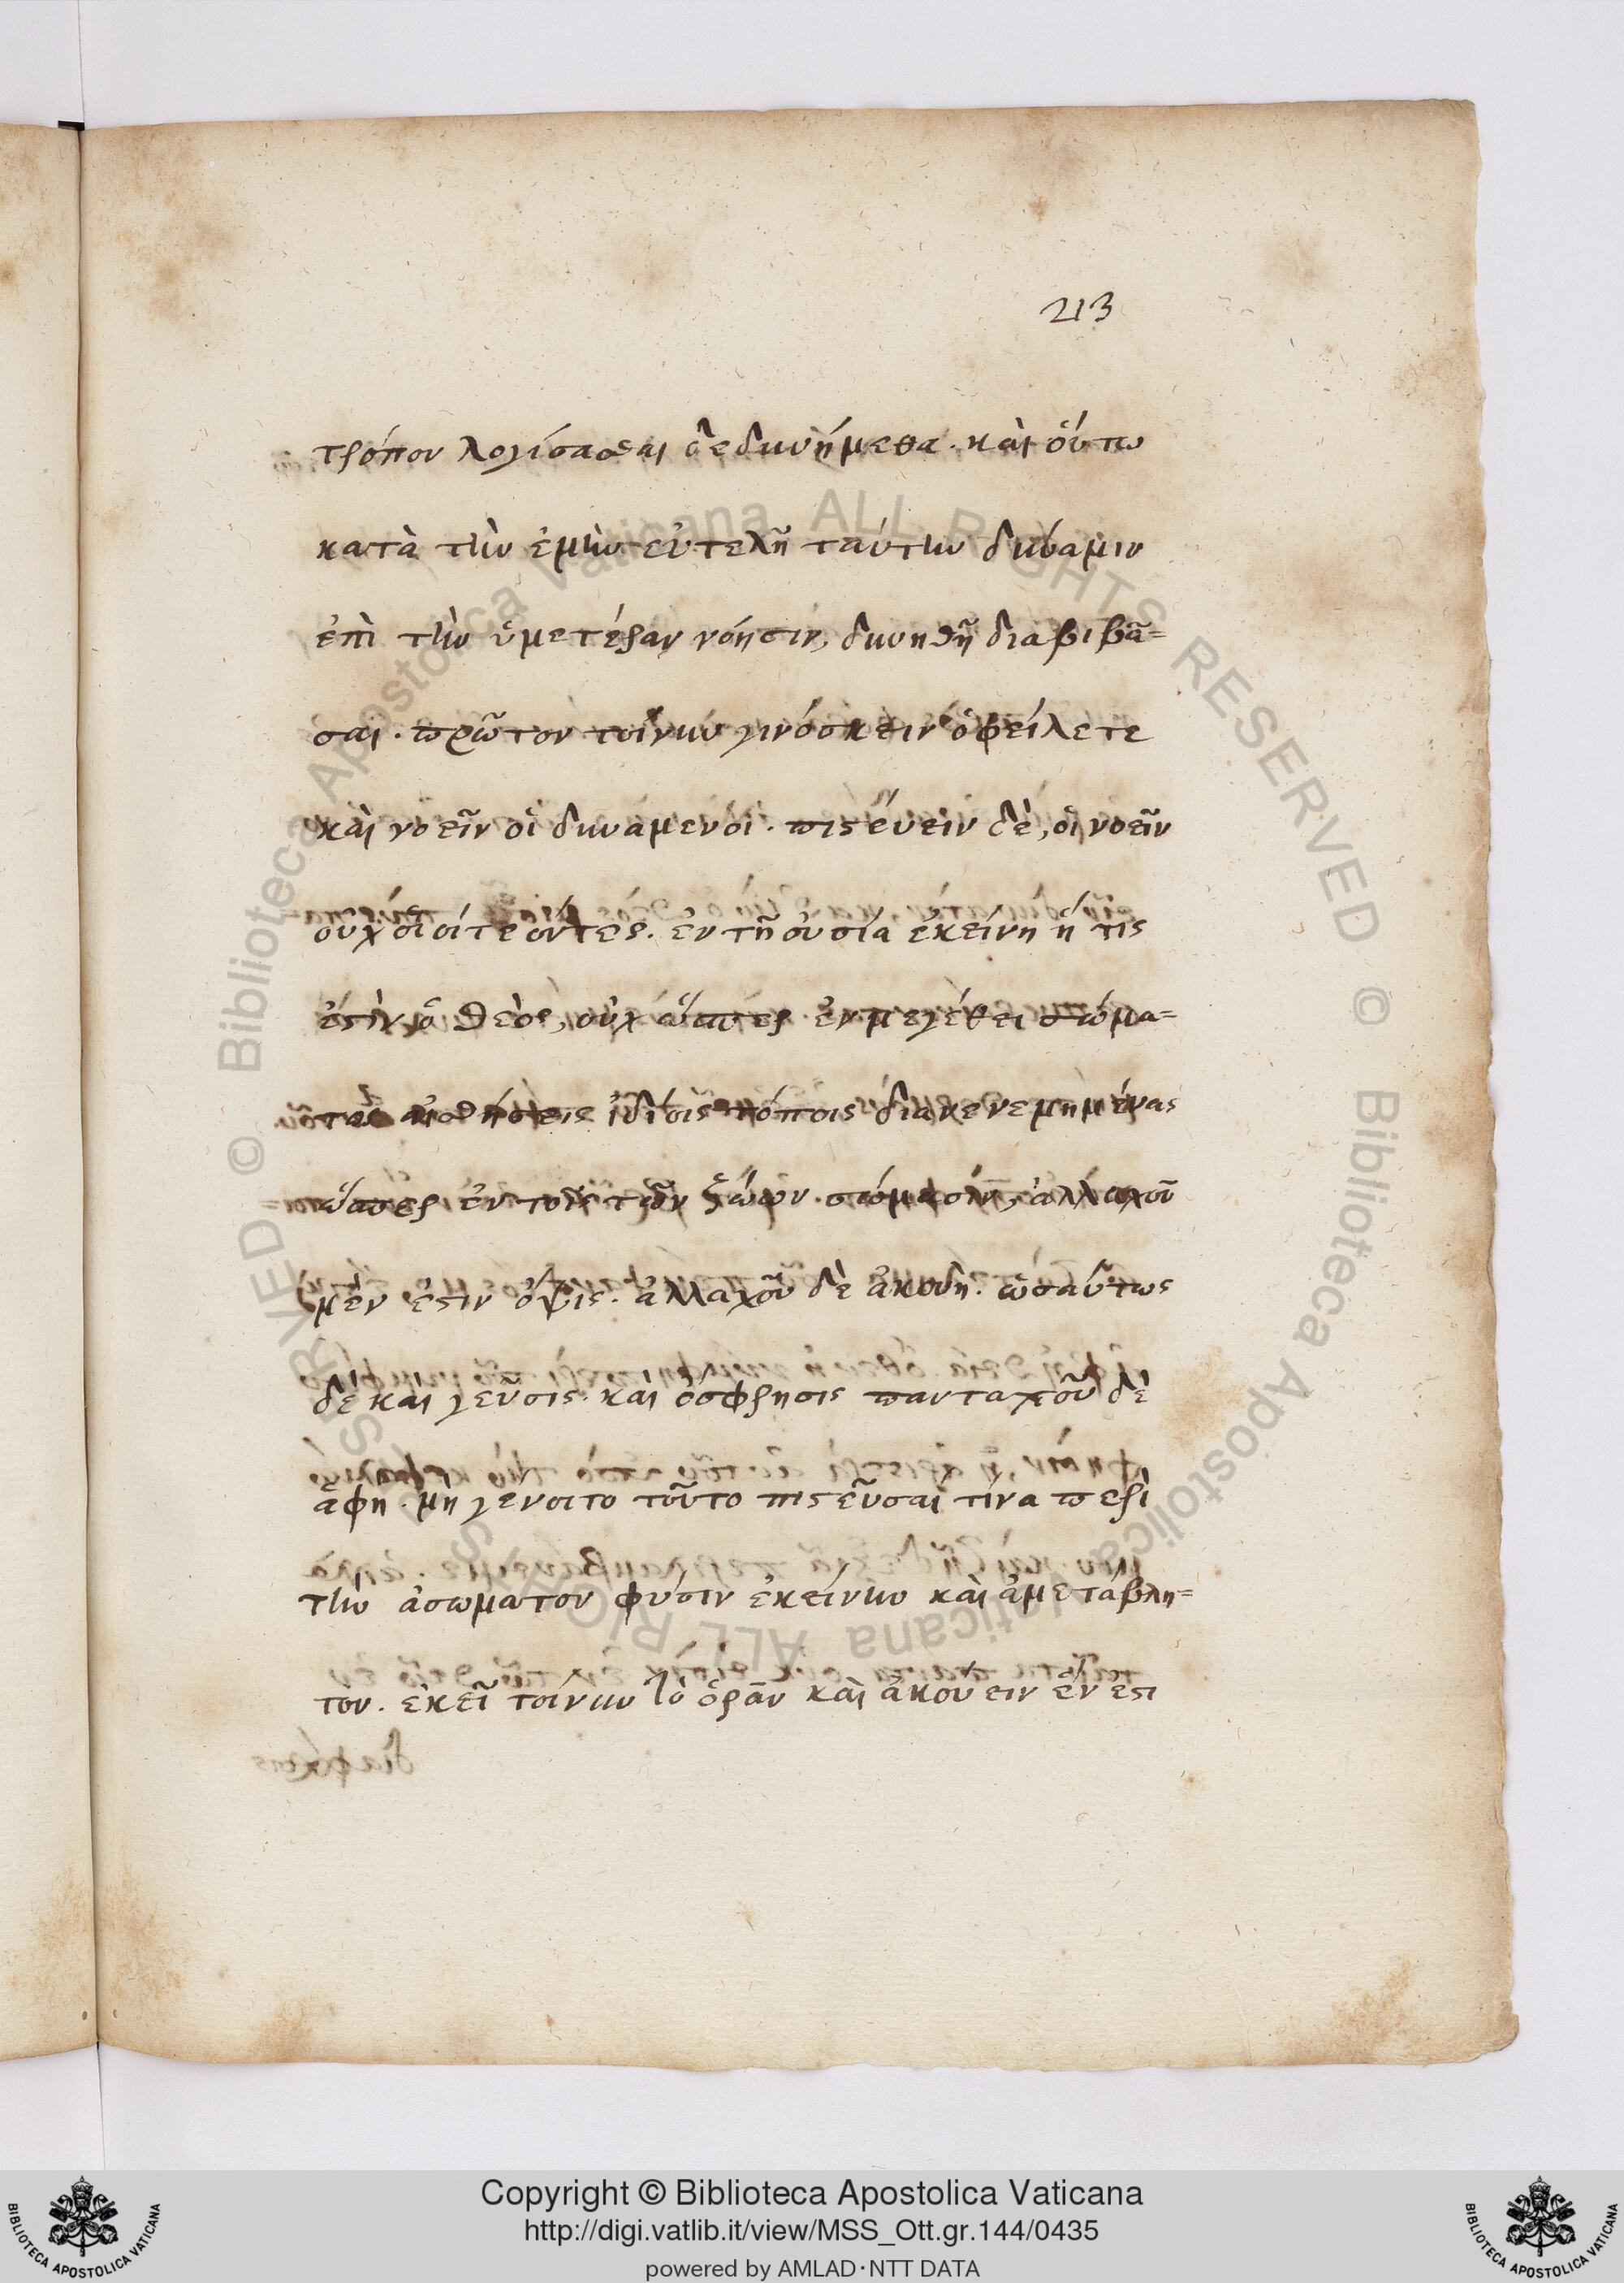 213
τρόπον λογίσασθαι δεδυνήμεθα. καὶ οὕτω
κατὰ τὴν ἐμὴν εὐτελῆ ταύτην δύναμιν
ἐπὶ τὴν ὑμετέραν νόησιν, δυνηθῆ διαβιβᾶ=
σαι. πρῶτον τοίνυν γινόσκειν ὀφείλετε
καὶ νοεῖν οἱ δυνάμενοι. πιστεύειν δὲ, οἱ νοεῖν
οὐχ οἷοί τε όντες. ἐν τῆ οὐσία ἐκείνη ἥ τις
ἐστὶν ὁ θεὸς, οὐχ ὥσπερ ἐν μεγέθει σώμα=
τος αἰσθήσεις ἰδίοις τόποις διανενεμημένας
ὥσπερ ἐν τοῖς τῶν ζώων σώμασιν, ἀλλαχοῦ
μὲν ἐστιν ὄψις. ἀλλαχοῦ δὲ ἀκοὴ. ὡσαύτως
δὲ καὶ γεῦσις. καὶ ὄσφρησις πανταχοῦ δὲ
ἁφη. μὴ γένοιτο τοῦτο πιστεῦσαί τινα περὶ
τὴν ἀσωματον φύσιν ἐκείνην καὶ ἀμετάβλη=
τον. ἐκεῖ τοίνυν τὸ ὁρᾶν καὶ ἀκούειν ἕν εστι
Copyright © Biblioteca Apostolica Vaticana
http://digi.vatlib.it/view/MSS_Ott.gr.144/0435
powered by AMLAD·NTT DATA
BIBLIOTECA APOSTOLICA VATICANA
BIBLIOTECA APOSTOLICA VATICANA
© Biblioteca Apostolica Vaticana ALL RIGHTS RESERVED © Biblioteca Apostolica Vaticana ALL RIGHTS RESERVED